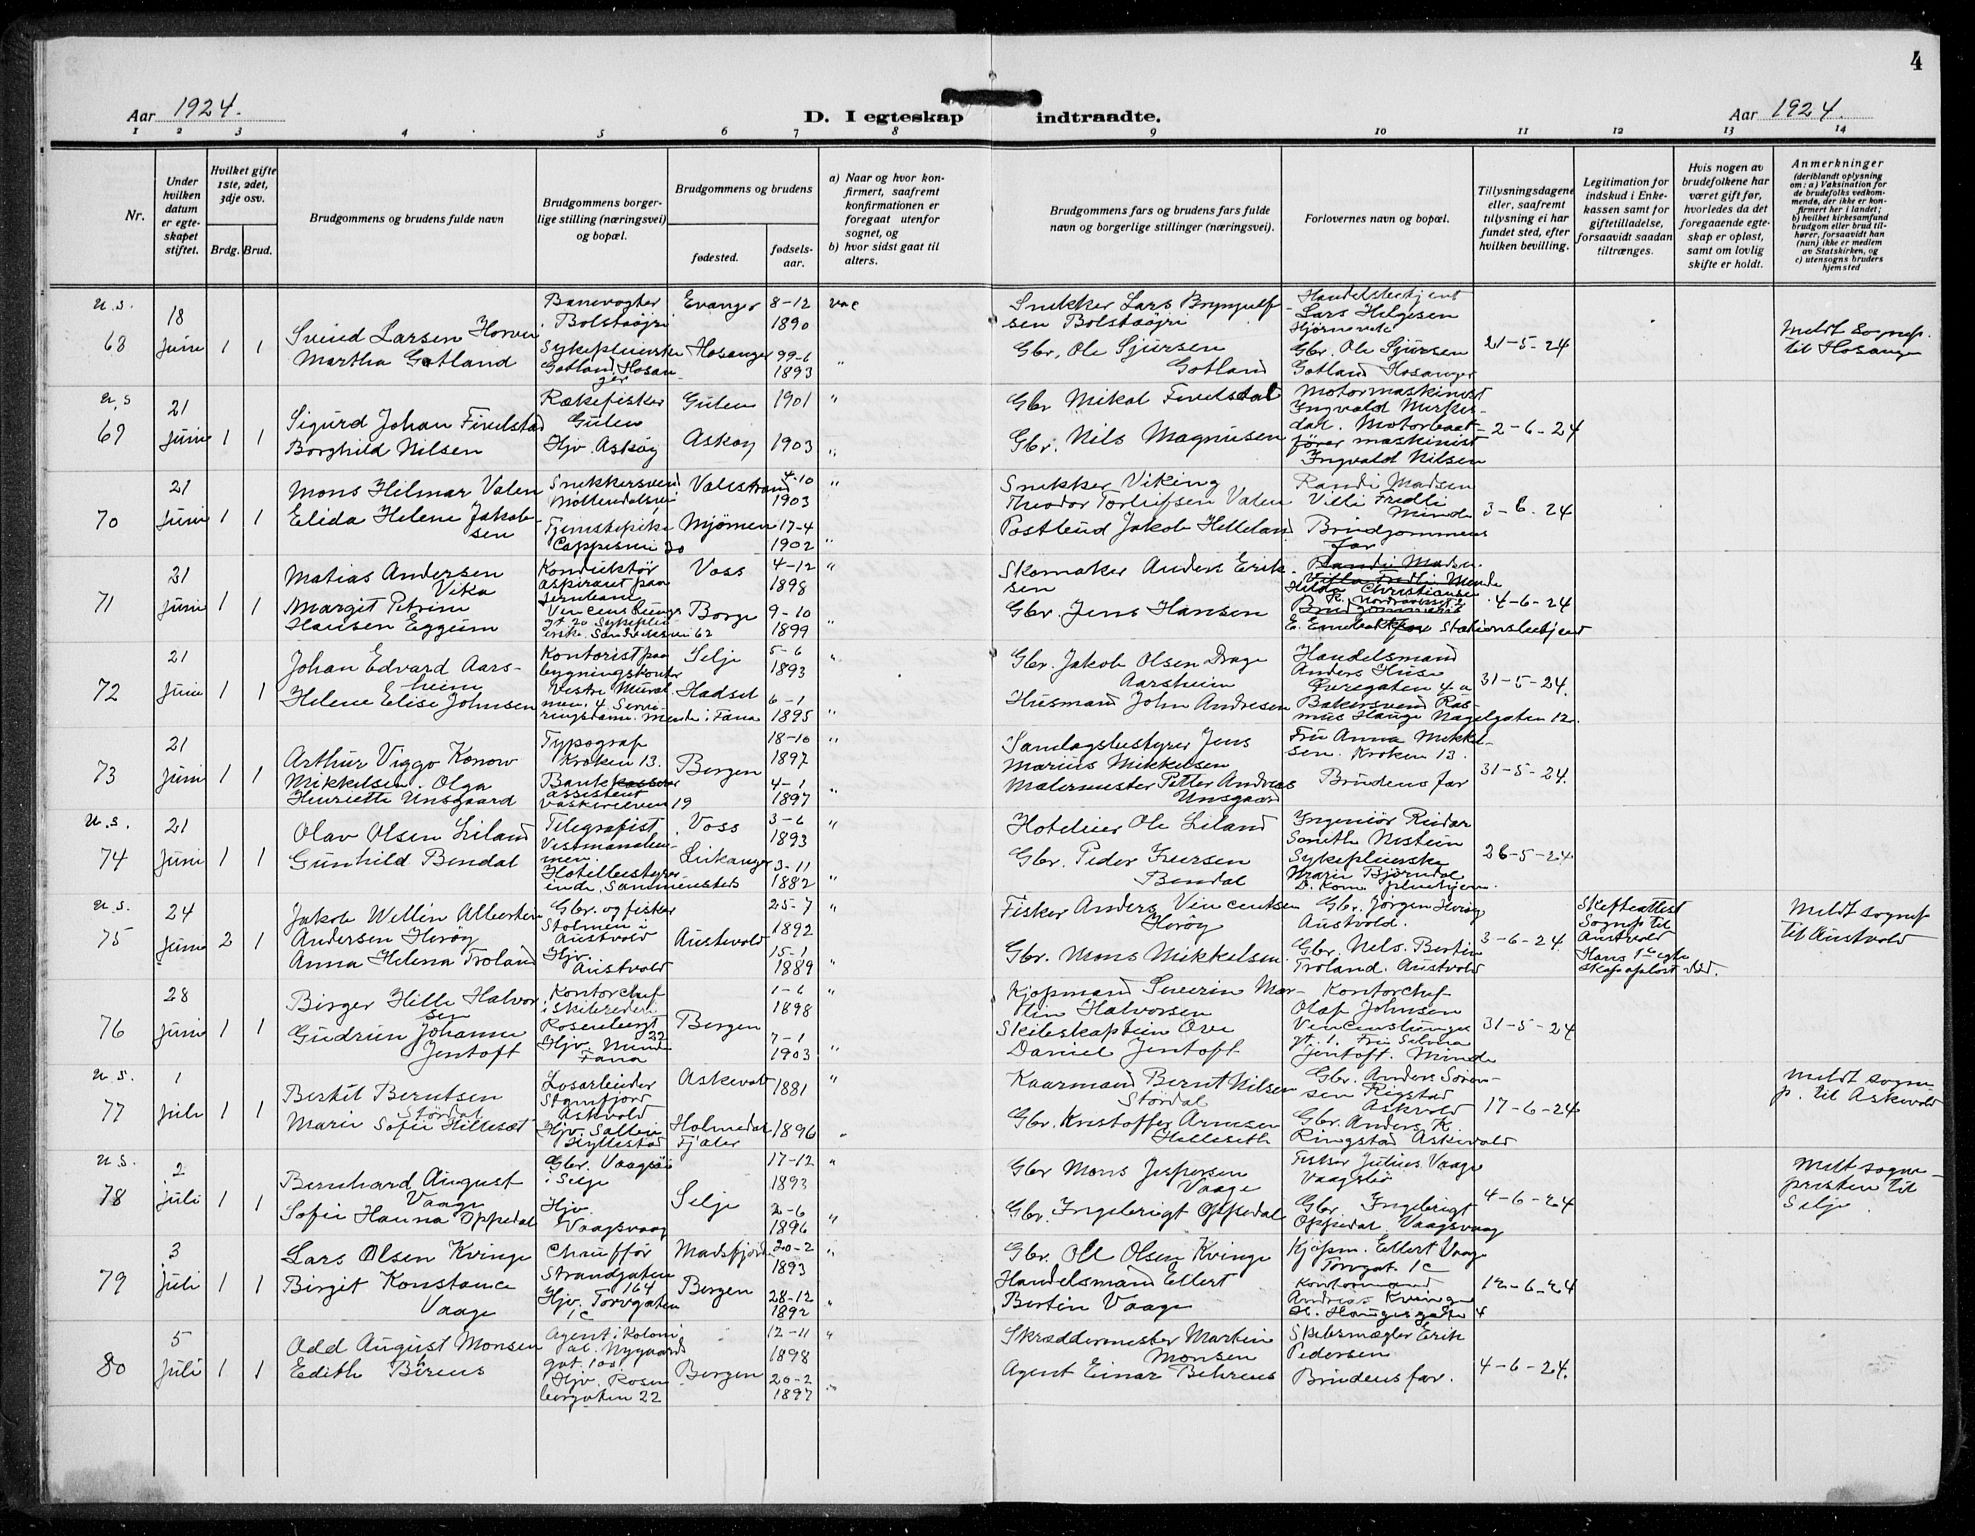 4
Aar 1924.
D. I egteskap indtraadte.
Aar 1924.
1 2 3 4 5 6 7 8 9 10 11 12 13 14
Nr.
Under hvilken datum er egteskapet stiftet.
Hvilket gifte 1ste, 2det, 3dje osv.
Brdg. Brud.
Brudgommens og brudens fulde navn
Brudgommens borgerlige stilling (næringsvei) og bopæl.
Brudgommens og brudens
fødested.
fødselsaar.
a) Naar og hvor konfirmert, saafremt konfirmationen er foregaat utenfor sognet, og
b) hvor sidst gaat til alters.
Brudgommens fars og brudens fars fulde navn og borgerlige stillinger (næringsvei).
Forlovernes navn og bopæl.
Tillysningsdagene eller, saafremt tillysning ei har fundet sted, efter hvilken bevilling.
Legitimation for indskud i Enkekassen samt for giftetilladelse, forsaavidt saadan tiltrænges.
Hvis nogen av brudefolkene har været gift før, hvorledes da det foregaaende egteskap er opløst, samt om lovlig skifte er holdt.
Anmerkninger (deriblandt oplysning om: a) Vaksination for de brudefolks vedkommende, der ikke er konfirmert her i landet; b) hvilket kirkesamfund brudgom eller brud tilhører, forsaavidt han (hun) ikke er medlem av Statskirken, og c) utensogns bruders hjemsted
u.s. 68 18 Juni 1 1
Svend Larsen Horvei
Martha Gotland
Banevogter Bolstaöyri
Sykepleierske Gotland Hosanger
Evanger 8-12 1890
Hosanger 1893
Snekker Lars Brynjulfsen Bolstaöyri
Gbr. Ole Sjursen Gotland
Handelsbetjent Lars Helgesen
Gbr. Ole Sjursen Gotland Hosanger
21-5-24
Meldt sognep. til Hosanger
u.s 69 21 Juni 1 1
Sigurd Johan Firelstad
Borghild Nilsen
Rækefisker Gulen
Hjv. Asköy
Gulen 1901
Asköy 1903
Gbr Mikal
Gbr. Nils Magnusen
Motormaskinist Ingvald
Motorbaatfører maskinist Ingvald Nilsen
2-6-24
70 21 Juni 1 1
Mons Hilmar Valen
Elida Helene Jakobsen
Snekkersvend Möllendalsvei
Valestrand 4-10 1903
Mjömen 17-4 1902
Snekker Viking Theodor Torleifsen Valen
Postbud Jakob Helleland
Randi Madsen Villa Fredli Minde
Brudgommens far
3-6-24
71 21 Juni 1 1
Matias Andersen Vika
Margit Petrine Hansen Eggum
Konduktör aspirant paa Jernbane
Voss 4-12 1898
Borge 9-10 1899
Skomaker Anders Eriksen
Gbr Jens Hansen
Randi Madsen Villa Fredli Minde
Hilda Christiansen
Brudgommens
Stationsbetjent
4-6-24
72 21 Juni 1 1
Johan Edvard Aarsheim
Helene Elise Johnsen
Kontorist paa bygningskontor
Selje 5-6 1893
Hadsel 6-1 1895
Gbr. Jakob Olsen Drage Aarsheim
Husmand John Andresen
Handelsmand Anders Huse
Øvregaten 4a
Bakersvend Rasmus Hauge Nagelgaten 12.
31-5-24.
73 21 Juni 1 1
Arthur Viggo Konow Mikkelsen
Olga Henriette Unsgaard
Typograf Kroken 13.
Bankkasserer assistent Vaskerelven 19
Bergen 18-10 1897
4-1 1897
Samlagsbestyrer Jens Marius Mikkelsen
Malermester Petter Andreas Unsgaard
Fru Anna Mikkelsen. Kroken 13.
Brudens far
31-5-24.
u.s. 74 21 Juni 1 1
Olav Olsen Liland
Gunhild Bendal
Telegrafist Vestmanalien
Hotelbestyrerinde
Voss 3-6 1893
Leikanger 3-11 1882
Hoteleier Ole Liland
Gbr. Peder Iversen Bendal
Ingeniör Reidar Smith Nistein
Sykepleierske Marie Björndal
26-5-24
u.s. 75 24 Juni 2 1
Jakob Willin Albertin Andersen Heröy
Anna Helena Troland
Gbr. og fisker Stolmen i Austvold
Hjv. Austvold
Austevold 25-7 1892
15-1 1889
Fisker Anders Vincentsen Heröy
Gbr. Mons Mikkelsen
Gbr. Jørgen Austvold.
Gbr. Nels. Bertin Troland. Austvold
3-6-24
Skifteattest Sognep til Austvold
Hans 1ste egteskap opløst
Meldt sognep til Austvold
76 28 Juni 1 1
Birger Hille Halvorsen
Gudrun Johanne Jentoft
Kontorchef i Skibsrederi Rosenbergt 22
Hjv. Minde Fana
Bergen 1-6 1898
7-1 1903
Kjøpmand Severin Martin Halvorsen
Skibskaptein Ove Daniel Jentoft
Kontorchef Olaf Johnsen
Fru Selma Jentoft. Minde
31-5-24
u.s. 77 1 Juli 1 1
Bertel Berntsen Stördal
Marie Sofie Hellesæt
Løsarbeider Stongfjord Askvold
Hjv. Hyllestad
Askevold 1881
Holmedal Fjaler 1896
Kaarmand Bernt Nilsen Stördal
Gbr. Kristoffer Arnesen Helleseth
Gbr. Anders Sørensen Askvold
Gbr. Anders K. Ringstad Askevold
17-6-24
Meldt sognep. til Askevold
u.s. 78 2 Juli 1 1
Bernhard August Vaage
Sofie Hanna Oppedal
Gbr. Vaagsöi i Selje
Hjv. Vaagsvaag
Selje 17-12 1893
2-6 1896
Gbr Mons Jespersen Vaage
Gbr. Ingebrigt Oppedal
Fisker Julius Vaage
Gbr. Ingebrigt Oppedal. Vaagsvaag
4-6-24
Meldt sognepresten til Selje.
79 3 Juli 1 1
Lars Olsen Kvinge
Birgit Konstance Vaage
Chaufför Strandgaten 164
Hjv. Torvgaten 1c
Masfjorden 20-2 1893
Bergen 28-12 1892
Gbr. Ole Olsen Kvinge
Handelsmand Ellert Bertin Vaage
Kjøpm. Ellert Vaage Torvgat. 1c
Kontormand Andreas Kvinge H. Haugesgate 4
12-6-24
80 5 Juli 1 1
Odd August Monsen
Edith Bërens
Agent i Kolonial. Nygaardsgat. 100
Hjv. Rosenbergaten 22
Bergen 12-11 1898
20-2 1897
Skræddermester Martin Monsen
Agent Einar Behrens
Skibsmægler Erik Pedersen
Brudens far.
4-6-24.